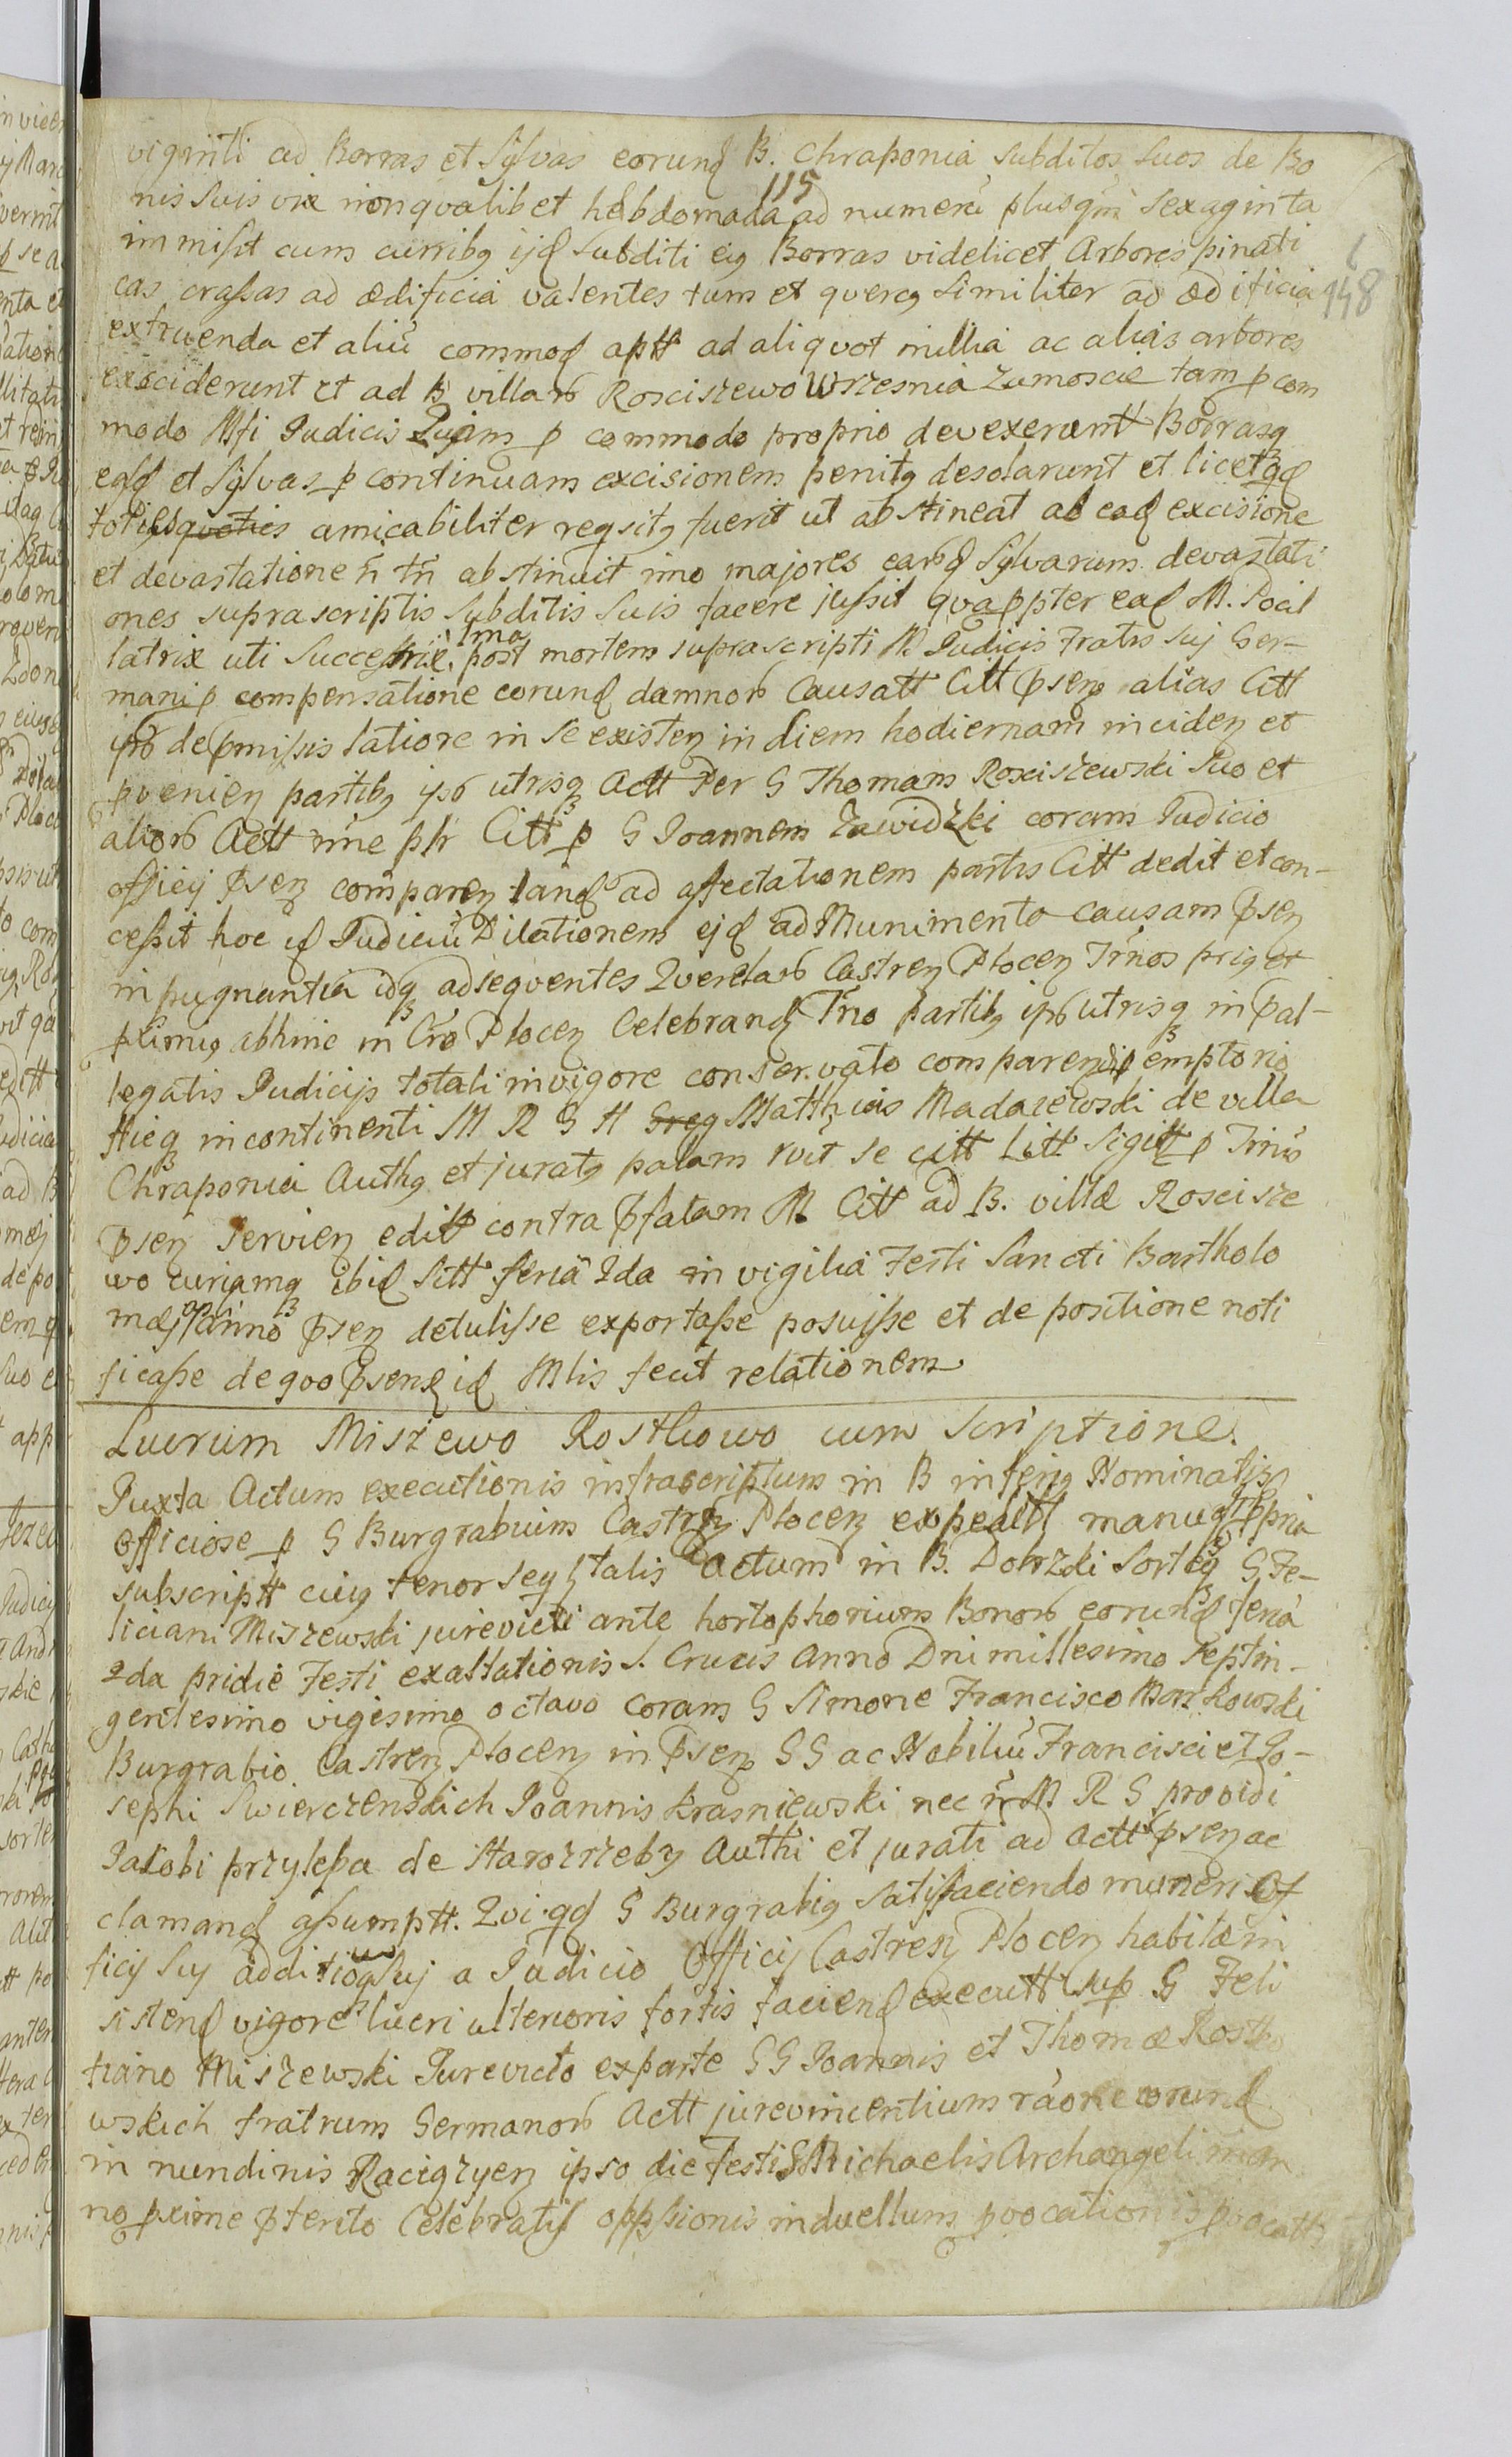 viginti ad Borras et Sylvas eorund B. Chraponia Subditos Suos de Bo
nis Suis vix non qvalibet hebdomada ad numerū plusqm sexaginta
115
immisit cum curribq ijd Subditi eiq Borras videlicet Arbores pinati
cas crassas ad ædificia valentes tum et qvercq Similiter ad ædificia
148
extruenda et aliū commod aptt ad aliqvot millia ac alias arbores
exsciderunt et ad B villaro Rosciszewo Wrzesnia Zamoscie tam p com
modo Mfi Judicis Qvam p commodo proprio devexerunt Borrasq
easd et Sylvas p continuam excisionem penitq desolarunt et licet qd
toties qvoties amicabiliter reqsitq fuerit ut abstineat ab ead excisione
et devastatione ñ tñ abstinuit imo majores eard Sylvarum devastati
ones suprascriptis Subditis Suis facere jussit qvappter ead M. Pocil
latrix uti Successtrix Ima post mortem suprascripti M Judicis Fratris Suj Ger-
mani p compensatione eorund damnor Causatt Citt psen alias Citt
ipso de pmissis latiore in Se existen in diem hodiernam inciden et
pvenien partibq ipso utrisq Actt Per G Thomam Rosciszewski Suo et
alior Actt nine ptr Citt p G Joannem Zawidzki coram Judicio
officij psen comparen tand ad affectationem partis Citt dedit et con-
cessit hoc id Judiciū Dilationem ejd ad Munimenta causam psen
inpugnantia idq ad seqventes Qverelar Castren Plocen Trnos priq et
plimiq abhinc in Cro Plocen Celebrand Trno partibq ipso utrisq in pal-
legatis Judicijs totali in vigore conservato comparendi p emptorio
Hicq in continenti M R G H Greg Matthias Madaiewski de villa
Chraponia Authq et juratq palam rvit se citt Litt Sigitt p Trnū
psen Servien editt contra pfatam M Citt ad B. villæ Roscisze
wo curiamq ibid Sitt feria 2da in vigilia Festi Sancti Bartholo
mæj apli anno psen detulisse exportasse posuisse et de positione noti
ficasse de qvo psens id Mlis fecit relationem
Lucrum Miszewo Rosthowo cum Scriptione.
Juxta Actum executionis infrascriptum in B inferiq Nominatis
Officiose p G Burgrabium Castren Plocen expeditt manuq ppria
subscriptt cuiq tenor seqr talis Actum in B. Dobrzki Sorteq G Fe-
liciani Miszewski jurevicti ante hortophorium Bonor eorund feria
2da pridie Festi exaltationis S. Crucis Anno Dni millesimo Septin-
gentesimo vigesimo octavo coram G Simone Francisco Borzkowski
Burgrabio Castren Plocen in psen GG ac Nobiliū Francisci et Jo-
sephi Swierczenskich Joannis Krasniewski nec ñ M R G providi
Jacobi przylepa de Starozrzeby Authi et jurati ad Actt psen ac
clamand assumptt. Qvi qd G Burgrabiq Satisfaciendo muneri Of
ficij Suj additioq Suj a Judicio Officij Castren Plocen habitæ in
sistend vigore lucri ulterioris fortis faciend executt sup G Feli
tiano Miszewski Jurevicto ex parte GG Joannis et Thomæ Rostko
wskich fratrum Germanor Actt jurevincentium raōne eorund
in nundinis Racigzyen ipso die Festi S Michaelis Archangeli in an
no pxime pterito Celebratis oppsionis in duellum pvocationis pvocatt